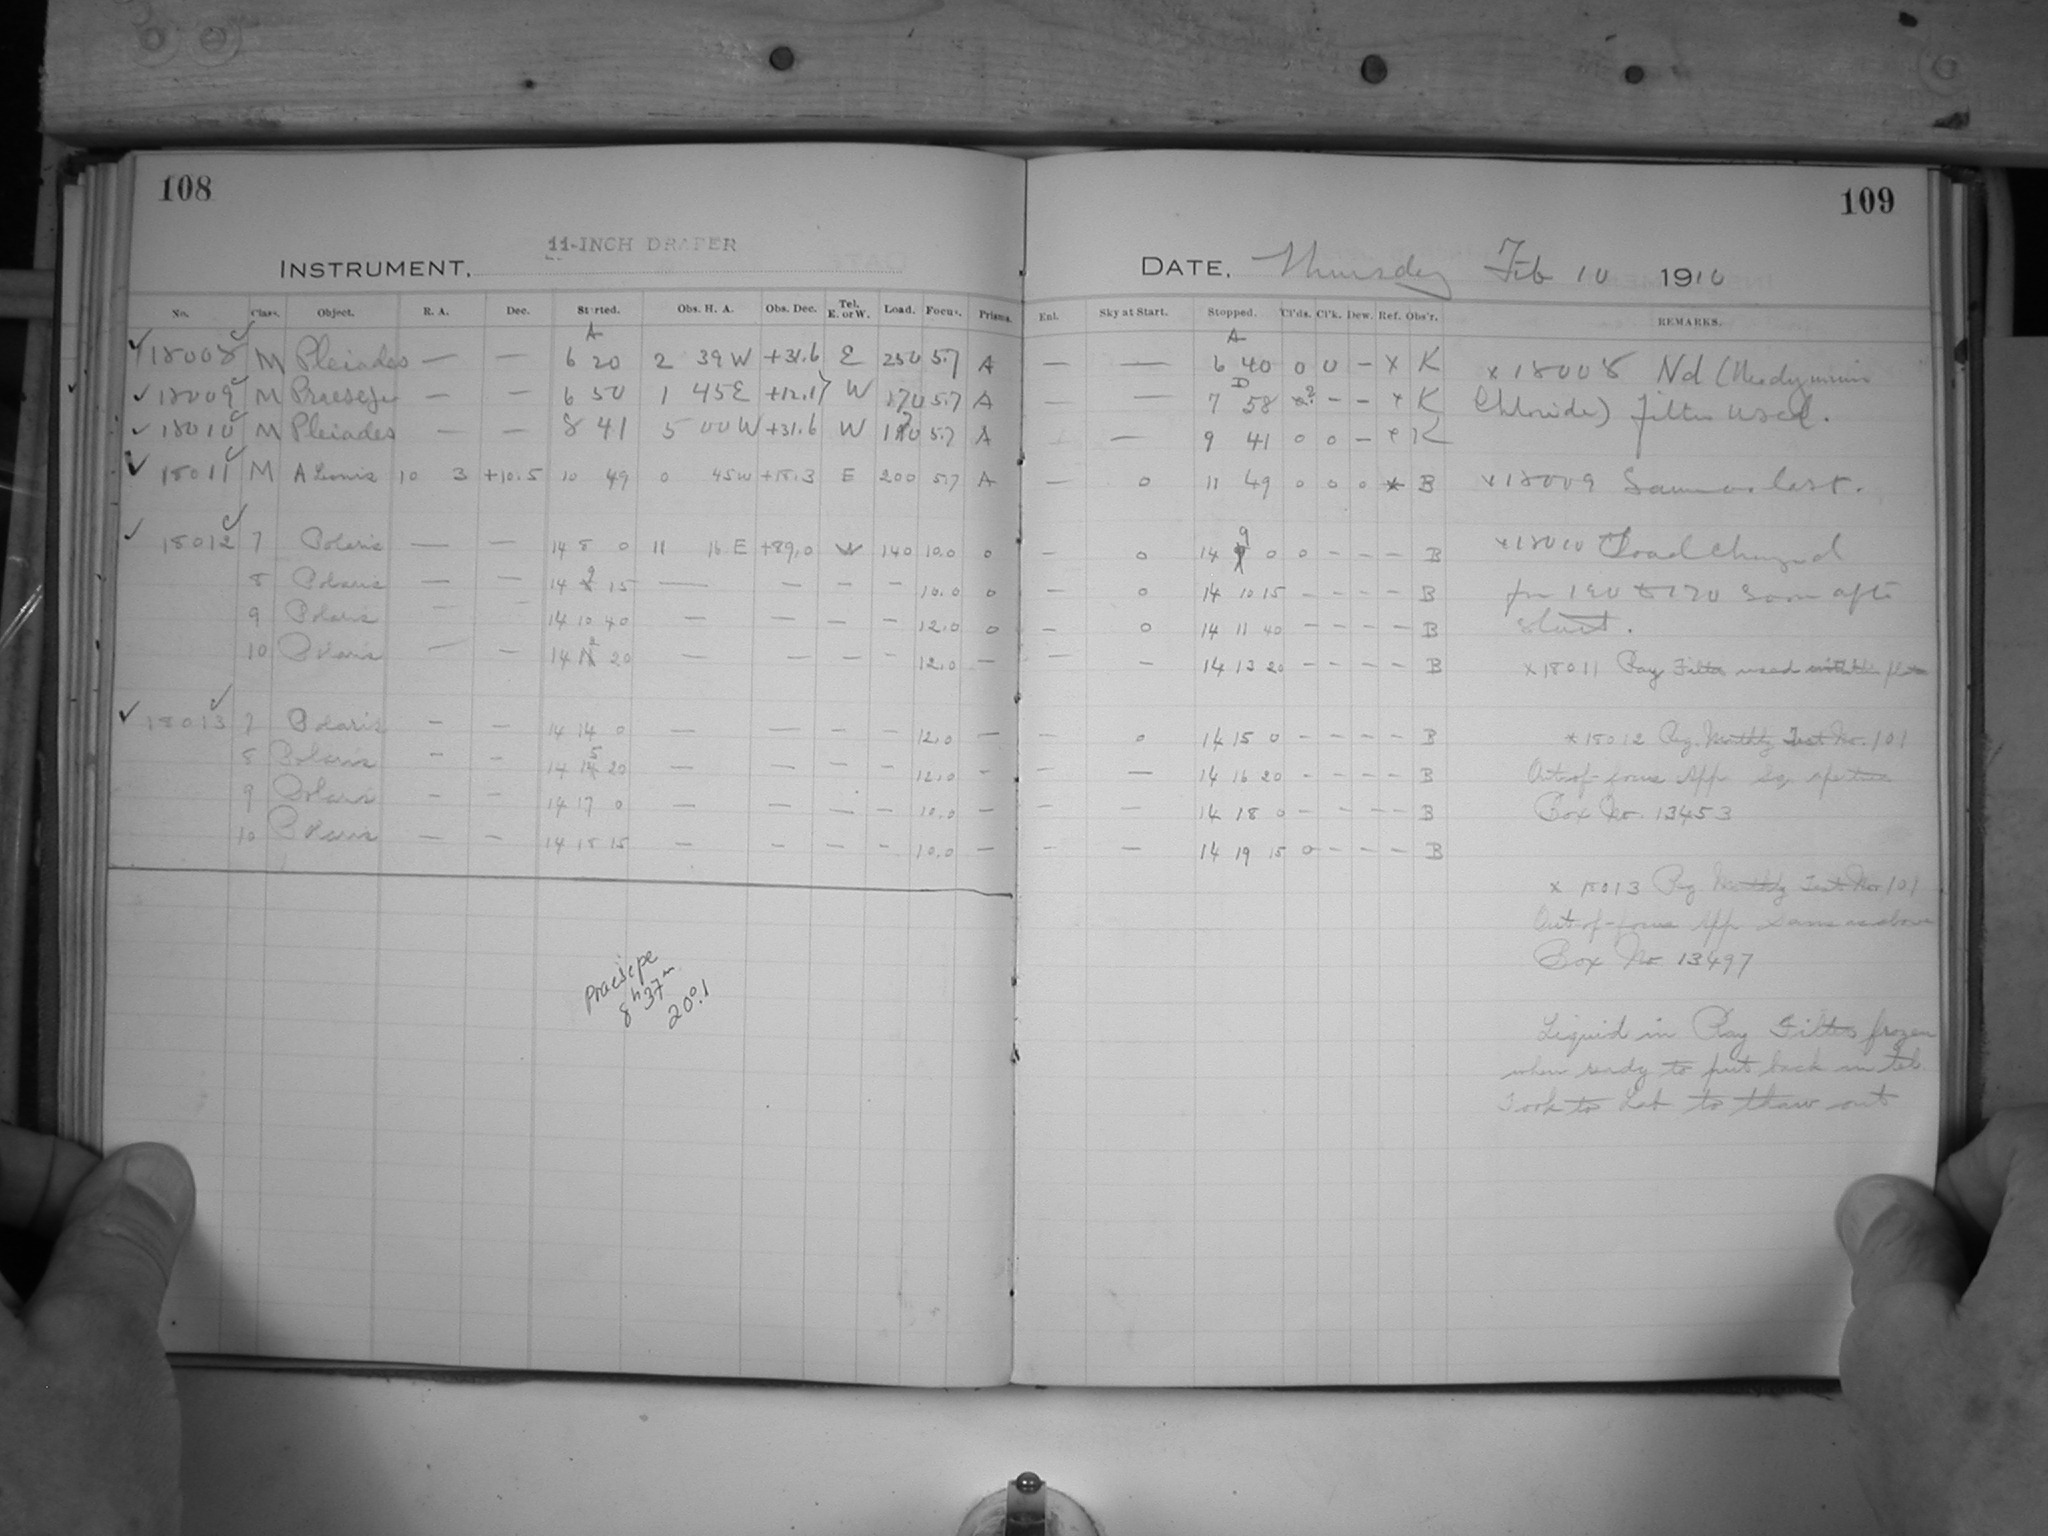 108
11-INCH DRAPER
INSTRUMENT.
No. Class. Object. R. A. Dec. Started. Obs. H. A. Obs. Dec. Tel. E. or W. Load. Focus. Prisms.
A
18008 M Pleiades — — 6 20 2 39 W +31.6 E 250 5.7 A
18009 M Praesepe — — 6 50 1 45 E W 170 5.7 A
18010 M Pleiades — — 8 41 5 00 W +31.6 W 5.7 A
18011 M A Leonis 10 3 +10.5 10 49 0 45 W +18.3 E 200 5.7 A
18012 7 Polaris — — 14 8 0 11 16 E +89.0 W 140 10.0 0
8 Polaris — — 14 9 15 — — — — 10.0 0
9 Polaris — — 14 10 40 — — — — 12.0 0
10 Polaris — — 14 12 20 — — — — 12.0 —
18013 7 Polaris — — 14 14 0 — — — — 12.0 —
8 Polaris — — 14 15 20 — — — — 12.0 —
9 Polaris — — 14 17 0 — — — — 10.0 —
10 Polaris — — 14 18 15 — — — — 10.0 —
Praesepe
8h 37m
20°.1
109
DATE. Thursday Feb 10 1910
Enl. Sky at Start. Stopped. Cl'ds. Cl'k. Dew. Ref. Obs'r. REMARKS.
A
— — 6 40 0 0 — x K
D
— — 7 58 — — x K
— 9 41 0 0 — x K
— 0 11 49 0 0 0 x B
— 0 14 9 0 0 — — — B
— 0 14 10 15 — — — — B
— 0 14 11 40 — — — — B
— — 14 13 20 — — — — B
— 0 14 15 0 — — — — B
— — 14 16 20 — — — — B
— — 14 18 0 — — — — B
— — 14 19 15 0 — — — B
x 18008 Nd (Neodymium
Chloride) filter used.
x 18009 Same as last.
x 18010 Load changed
fm 190 to 170 soon after
start.
x 18011 Ray Filter used
x 18012 Reg. Monthly Test No. 101
Out-of-focus App Sq. aperture
Box No. 13453
x 18013 Reg Monthly Test No 101
Out-of-focus App Same as above
Box No. 13497
Liquid in Ray Filter frozen
when ready to put back on tel.
Took to Lab to thaw out